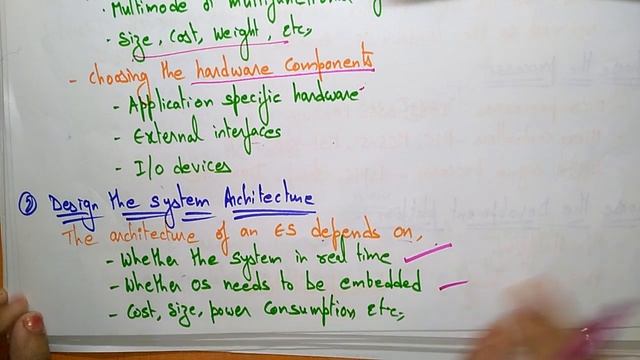 . Multimode or multifunctional
. Size, cost, weight, etc,
- choosing the hardware components
- Application specific hardware
- External interfaces
- I/o devices
⑤ Design the system Architecture
The architecture of an ES depends on,
- Whether the system in real time
- Whether os needs to be embedded
- Cost, size, power consumption etc,